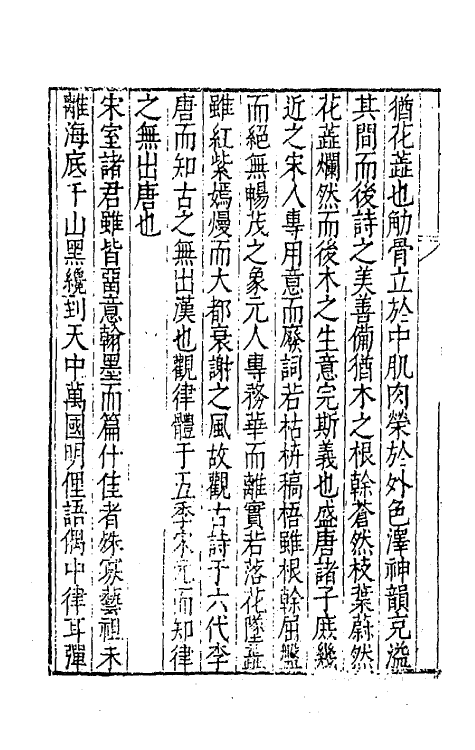 猶花蘂也觔骨立於中肌肉榮於外色澤神韻充溢
其間而後詩之美善備猶木之根榦蒼然枝葉蔚然
花蘂爛然而後木之生意完斯義也盛唐諸子庶幾
近之宋人專用意而廢詞若枯枿槁梧雖根榦屈盤
而絕無暢茂之象元人專務華而離實若落花墜蘂
雖紅紫嫣熳而大都衰謝之風故觀古詩于六代李
唐而知古之無出漢也觀律體于五季宋元而知律
之無出唐也
宋室諸君雖皆留意翰墨而篇什佳者殊寡藝祖未
離海底千山黑纔到天中萬國明俚語偶中律耳彈